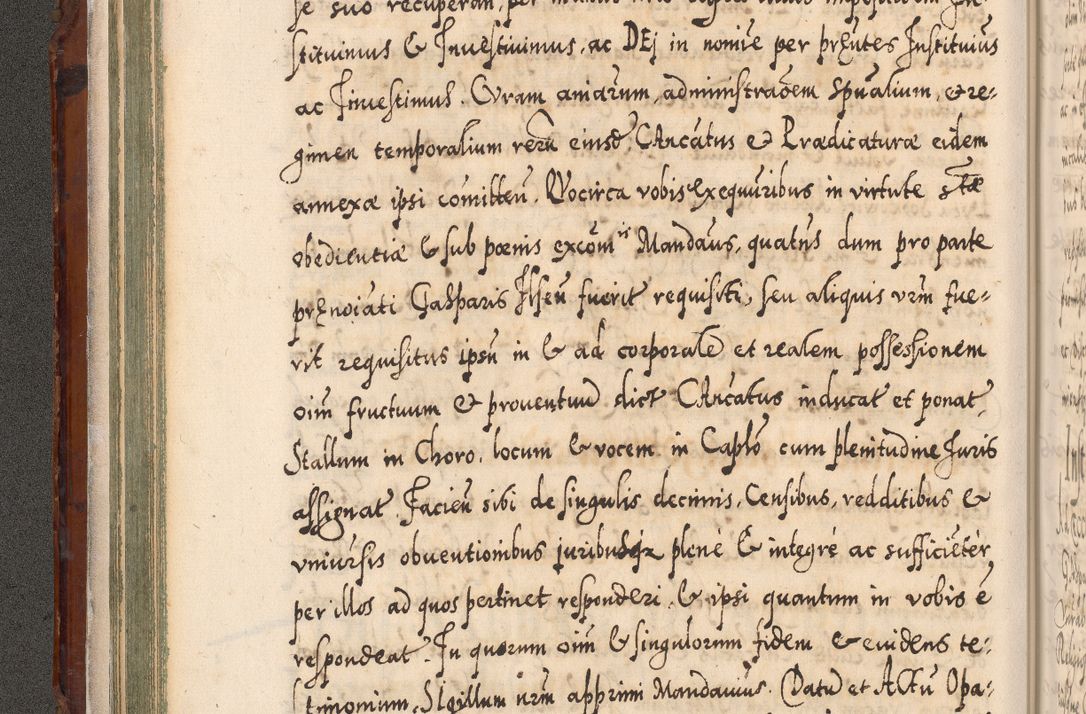 se suo recuperan, per
stituimus & Inuestiuimus, ac DEj in nomīe per prȩntes Instituius
ac Inuestimus. Curam aniarum, administraōem Spūalium, et re-
gimen temporalium rerū eiusd, CAncātus et Prædicaturæ eidem
annexæ ipsi comitten. Quocirca vobis Exequuribus in virtute Stæ
obedientiæ & sub pœnis excōm is Mandāus, quatns dum pro parte
prȩnoiāti Gasparis Ilseū fuerit requisiti, seu aliquis vrm fue-
rit requisitus ipsū in & ad corporale et realem possessionem
oim fructuum & prouentuū dict CAncātus inducat et ponat,
Stallum in Choro, locum & vocem in Caplo cum plenitudine Juris
assignat. Facieū sibi de singulis decimis, Censibus, redditibus &
vniuersis obuentionibus juribusqȝ plenè & integrè ac sufficiēter
per illos ad quos pertinet responderi, & ipsi quantum in vobis ē
respondeat. In quorum oim & singulorum fidem & euidens te-
stimonium, Sigillum nrm apprimi Mandauius. Datū et ACtū Opa-